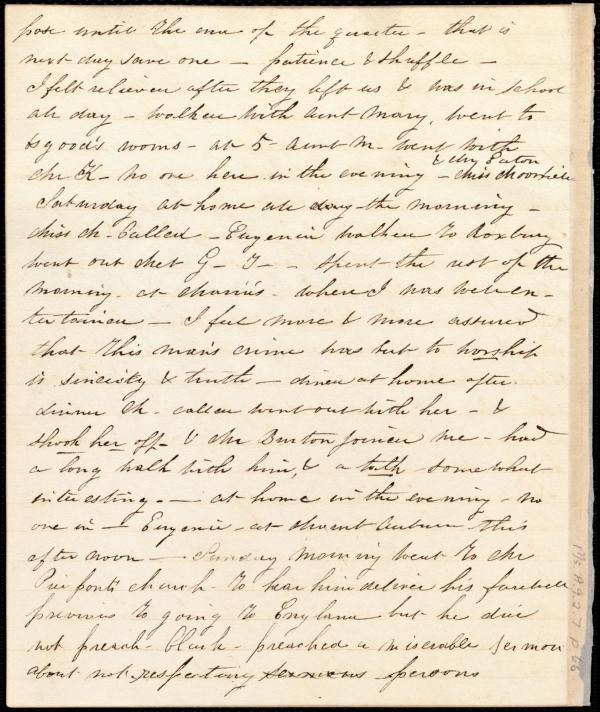 pose until the end of the quarter - that is
next day save one - patience & shuffle -
I felt relieved after they left us & was in school
all day - walked with aunt Mary, went to
goods rooms - at 5 - aunt M - went with
Mr K - no one here in the evening - & Miss Moorfield
& Mr Eaton
Saturday at home all day the morning -
Miss M. Called - Eugenia walked to Roxbury
went out met G - T - - spent the rest of the
morning - at - where I was well en-
tertained - I feel more & more assured
that this man's crime was but to worship
is sincerity & truth - dined at home after
dinner Ch. called went out with her - &
shook her off - & Mr Burton joined me - had
a long walk with him, & a talk - somewhat
interesting. - at home in the evening - no
one in - Eugenia - at Mount Auburn this
afternoon - Sunday morning went to Mr
Pierpont's church - to hear him deliver his farewell
previous to going to England but he did
not preach - Clark - preached a miserable sermon
about not respecting sermons persons
Ms.A.9.2.7 p 66